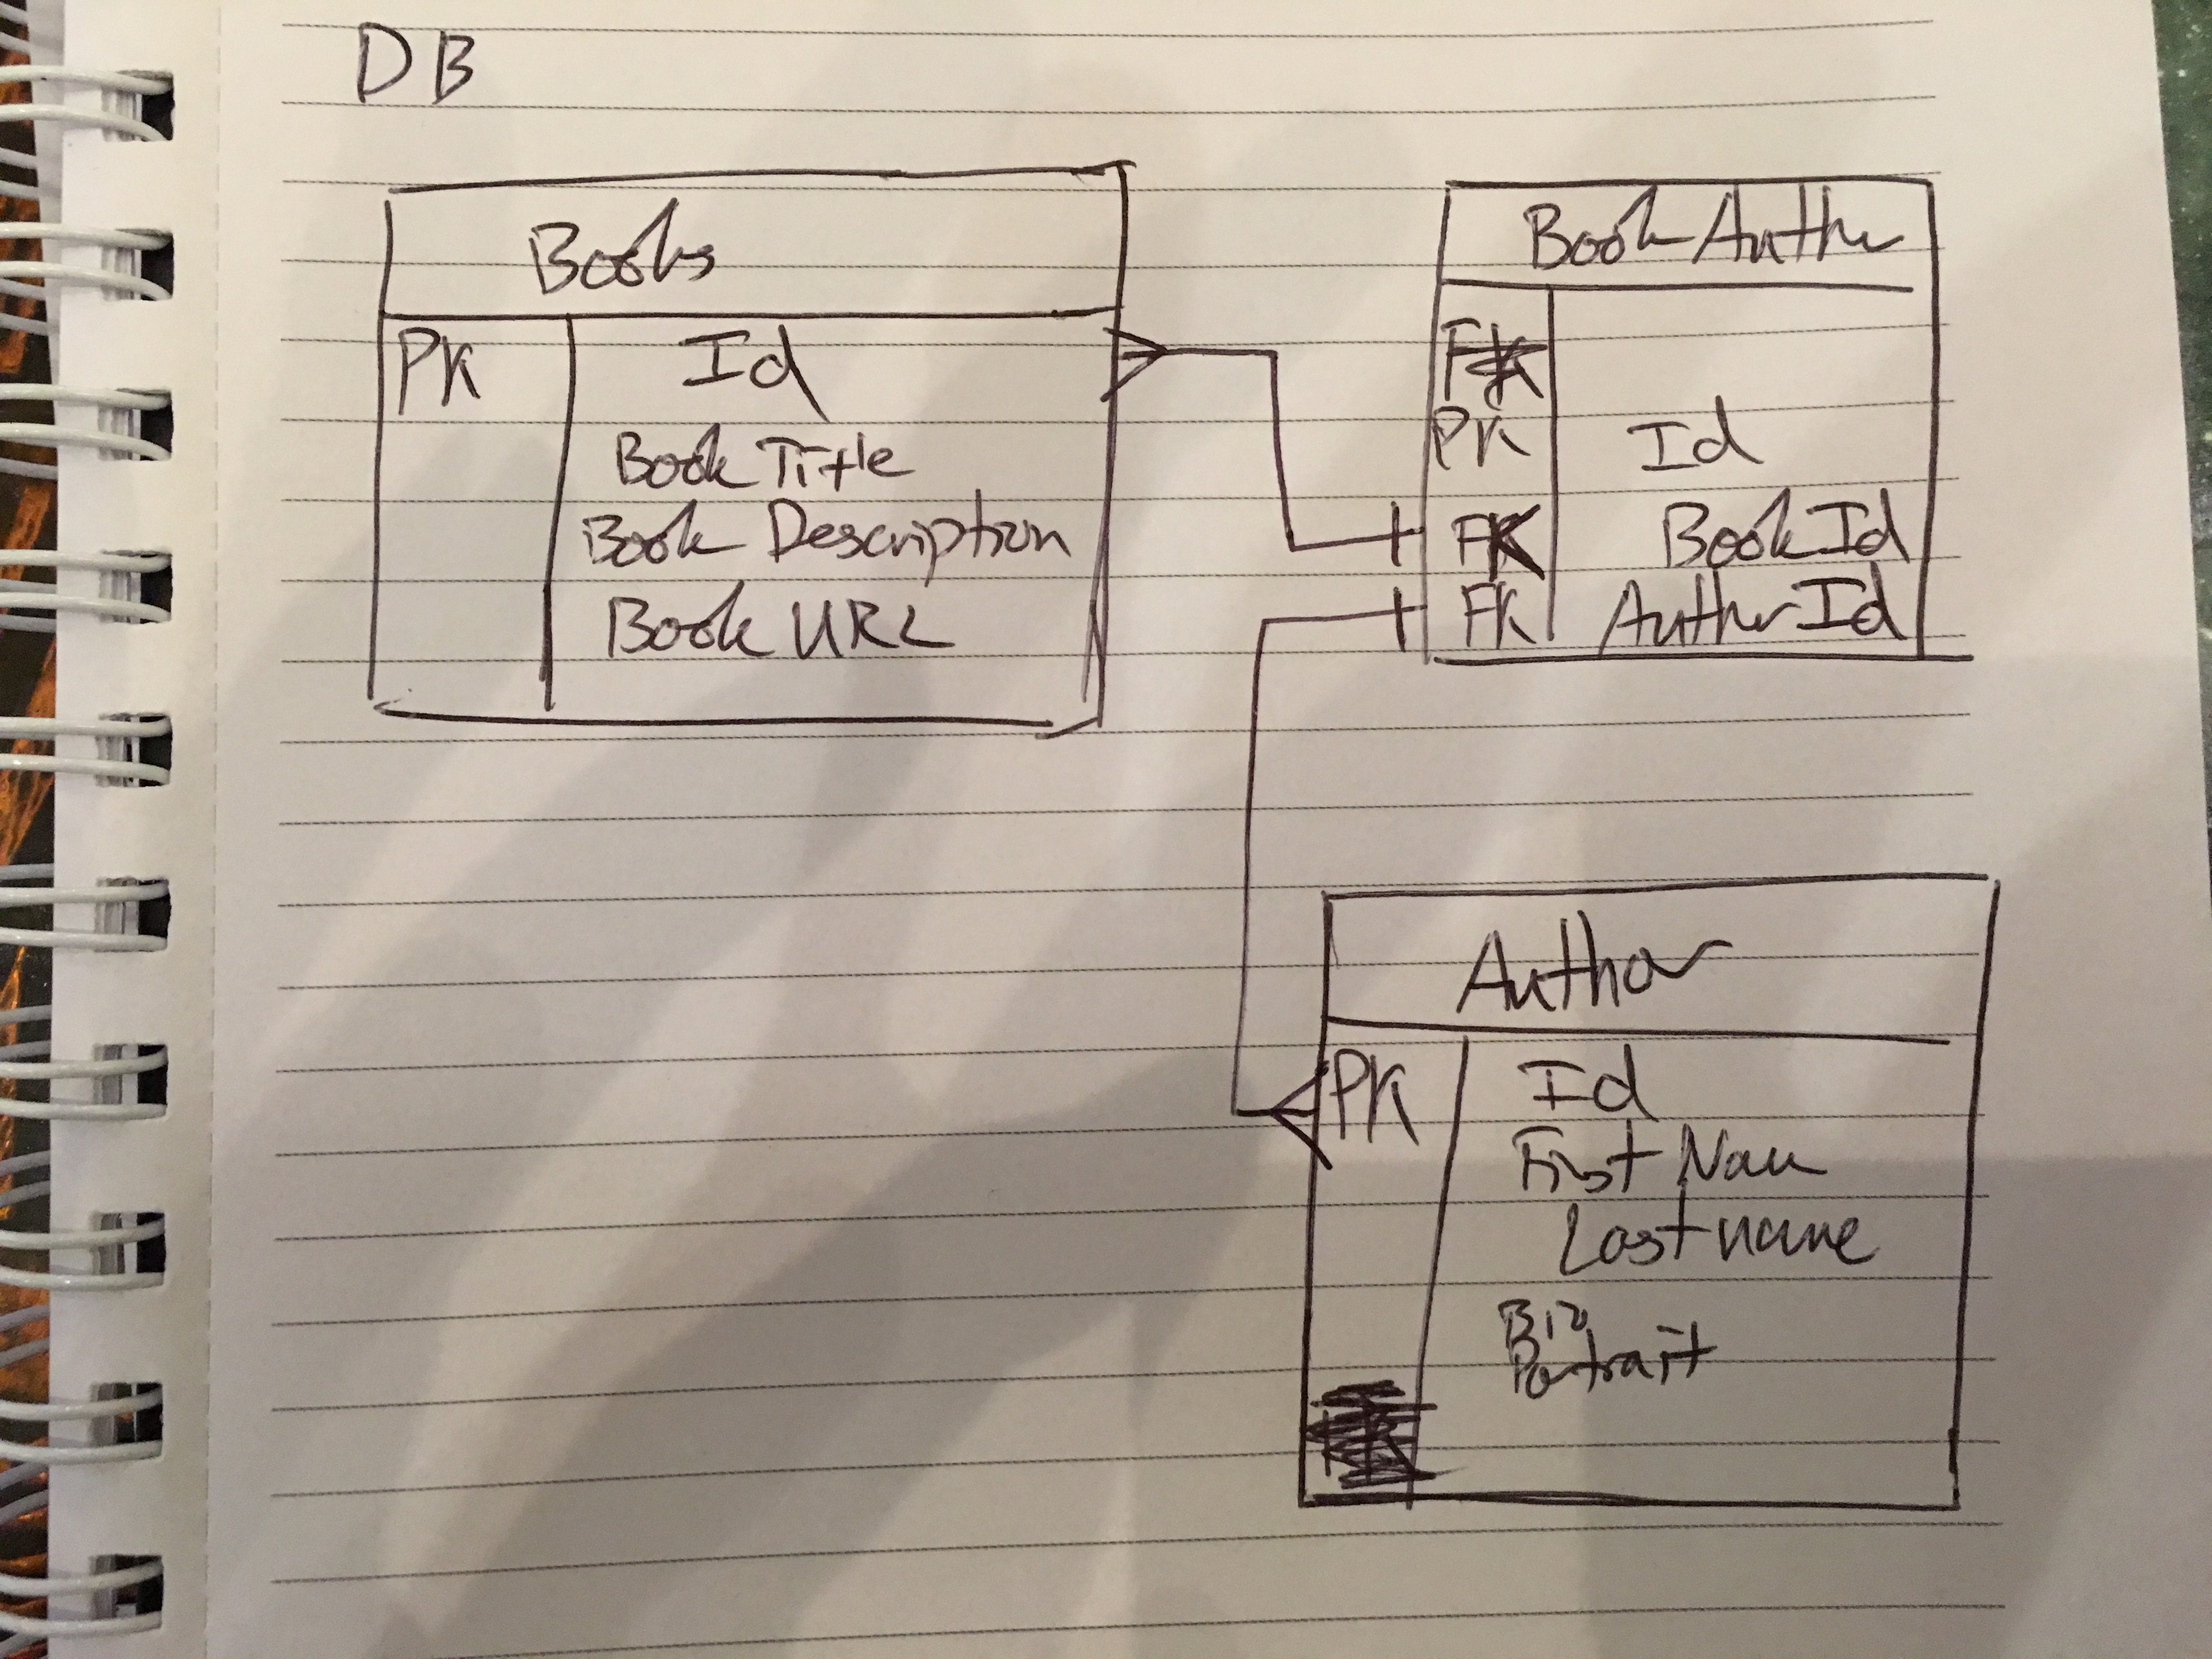 DB
Books
PK Id
Book Title
Book Description
Book URL
Book Author
FK
PK Id
FK Book Id
FK Author Id
Author
PK Id
First Name
Last name
Bio
Portrait